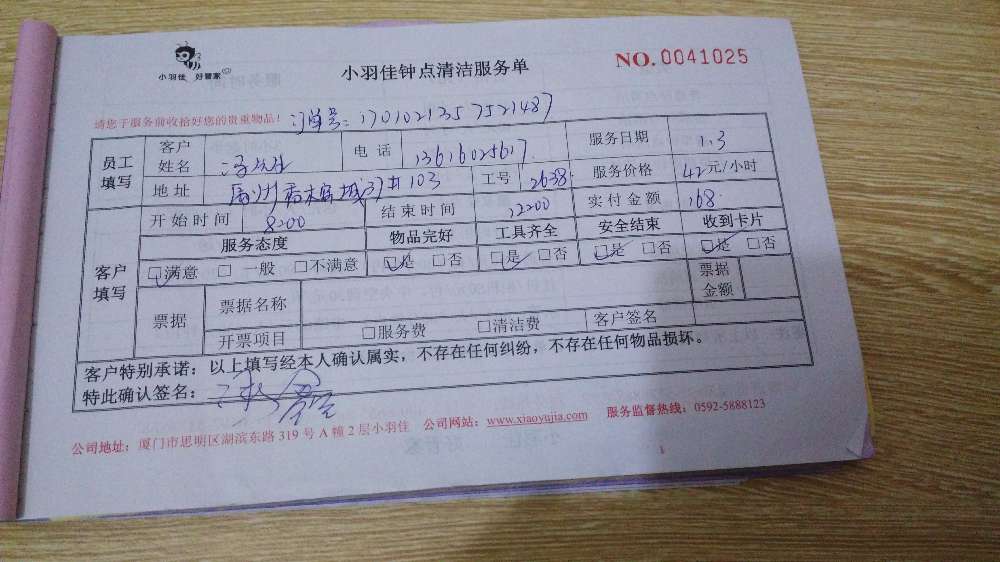 小羽佳 好管家
小羽佳钟点清洁服务单
NO. 0041025
请您于服务前收拾好您的贵重物品!
订单号: 1701021357521487
员工填写 客户姓名 电话 13616025617 服务日期 1.3
地址 103 工号 2638 服务价格 42元/小时
客户填写 开始时间 8:00 结束时间 12:00 实付金额 168
服务态度 物品完好 工具齐全 安全结束 收到卡片
☑满意 □一般 □不满意 ☑是 □否 ☑是 □否 ☑是 □否 ☑是 □否
票据 票据名称 票据金额
开票项目 □服务费 □清洁费 客户签名
客户特别承诺:以上填写经本人确认属实,不存在任何纠纷,不存在任何物品损坏。
特此确认签名:
公司地址:厦门市思明区湖滨东路 319 号 A 幢 2 层小羽佳 公司网站:www.xiaoyujia.com 服务监督热线:0592-5888123
1